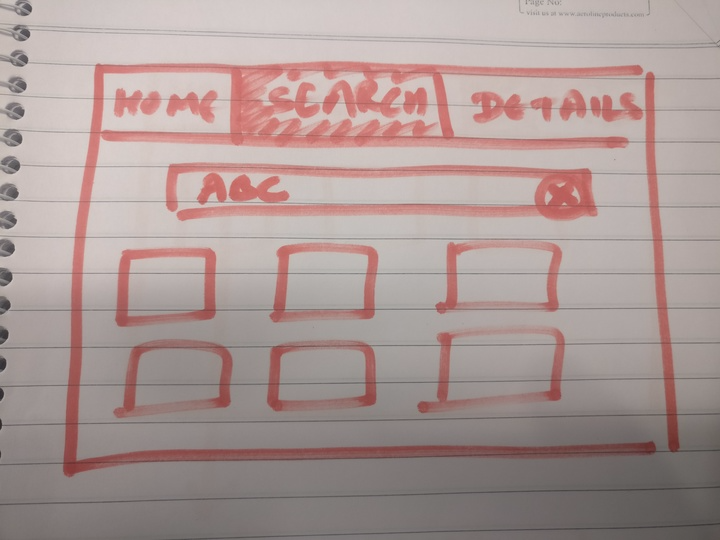 Page No:
visit us at www.aetofineproducts.com
HOME SEARCH DETAILS
ABC X